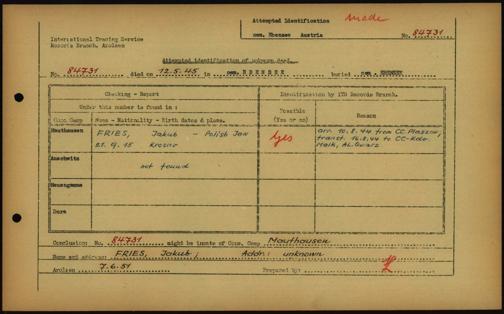 Attempted Identification
made
cem. Ebensee Austria
No. 84731
International Tracing Service
Records Branch, Arolsen
Attempted identification of unknown dead.
No. 84731 died on 12.5.45 in cem. EBENSEE buried cem. EBENSEE
Checking - Report
Identification by ITS Records Branch.
Under this number is found in :
Possible
(Yes or no)
Reason
Conc Camp
Name - Nationality - Birth dates & place.
Mauthausen
FRIES, Jakub - Polish Jew
15 Krosno
Yes
arr. 10.8.44 from CC Plaszow,
transf. 16.8.44 to CC-Kdo.
Melk, AL. Quarz
Auschwitz
not found
Neuengamme
Dora
Conclusion: No. 84731 might be inmate of Conc. Camp Mauthausen
Name and address: FRIES, Jakub; Addr: unknown
Arolsen 7.6.51 Prepared by: